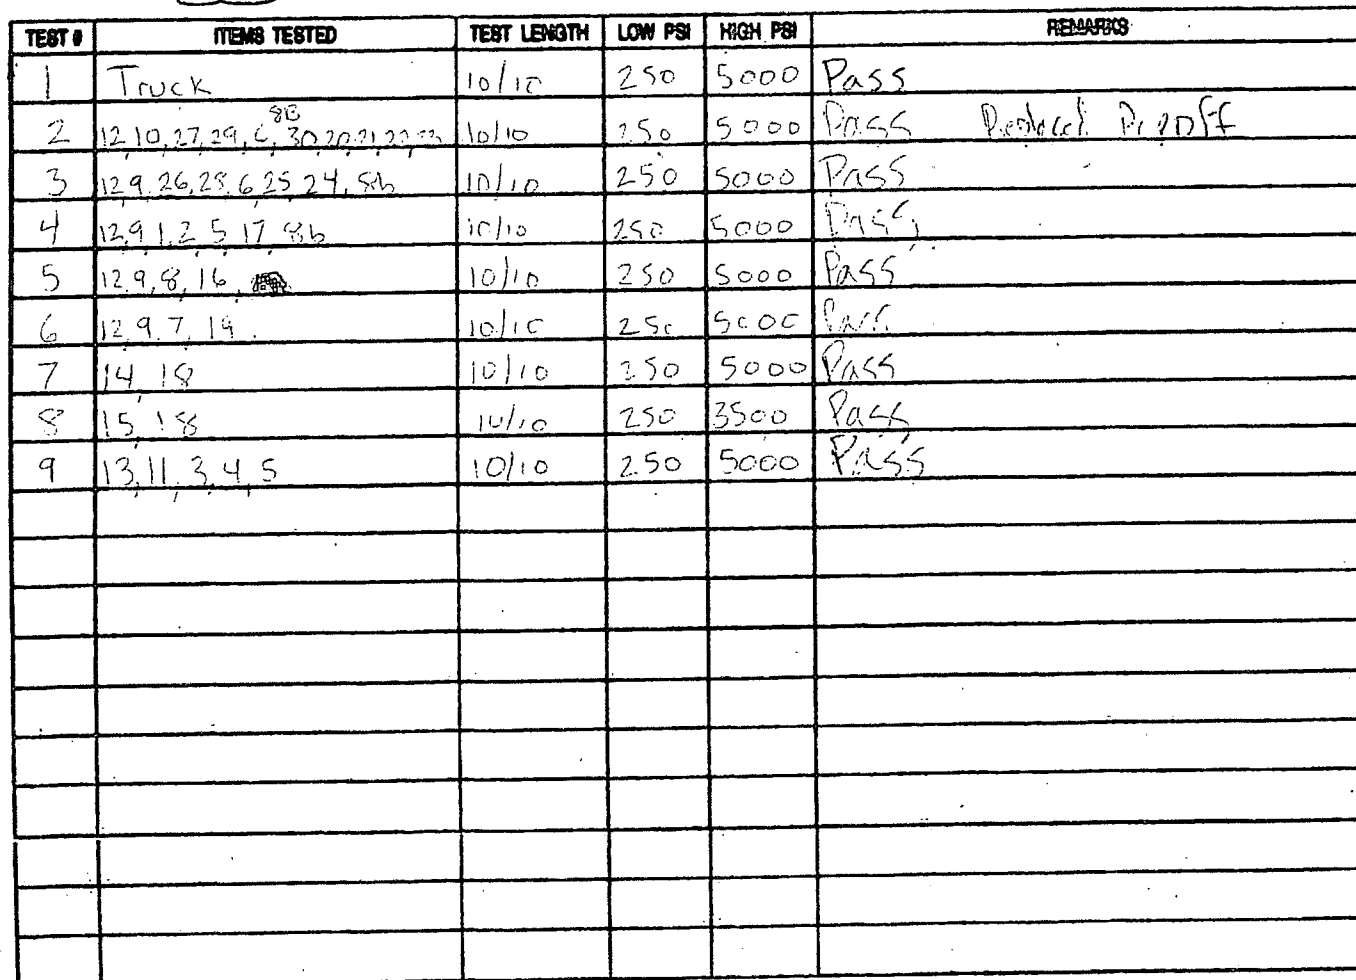 TEST # ITEMS TESTED TEST LENGTH LOW PSI HIGH PSI REMARKS
1 Truck 10/10 250 5000 Pass
8B
2 12,10,27,29,6,30,20,21,22,23 10/10 250 5000 Pass
3 12,9,26,28,6,25,24,8b 10/10 250 5000 Pass
4 12,9,1,2,5,17,8b 10/10 250 5000 Pass
5 12,9,8,16, 10/10 250 5000 Pass
6 12,9,7,19 10/10 250 5000 Pass
7 14,18 10/10 250 5000 Pass
8 15,18 10/10 250 3500 Pass
9 13,11,3,4,5 10/10 250 5000 Pass